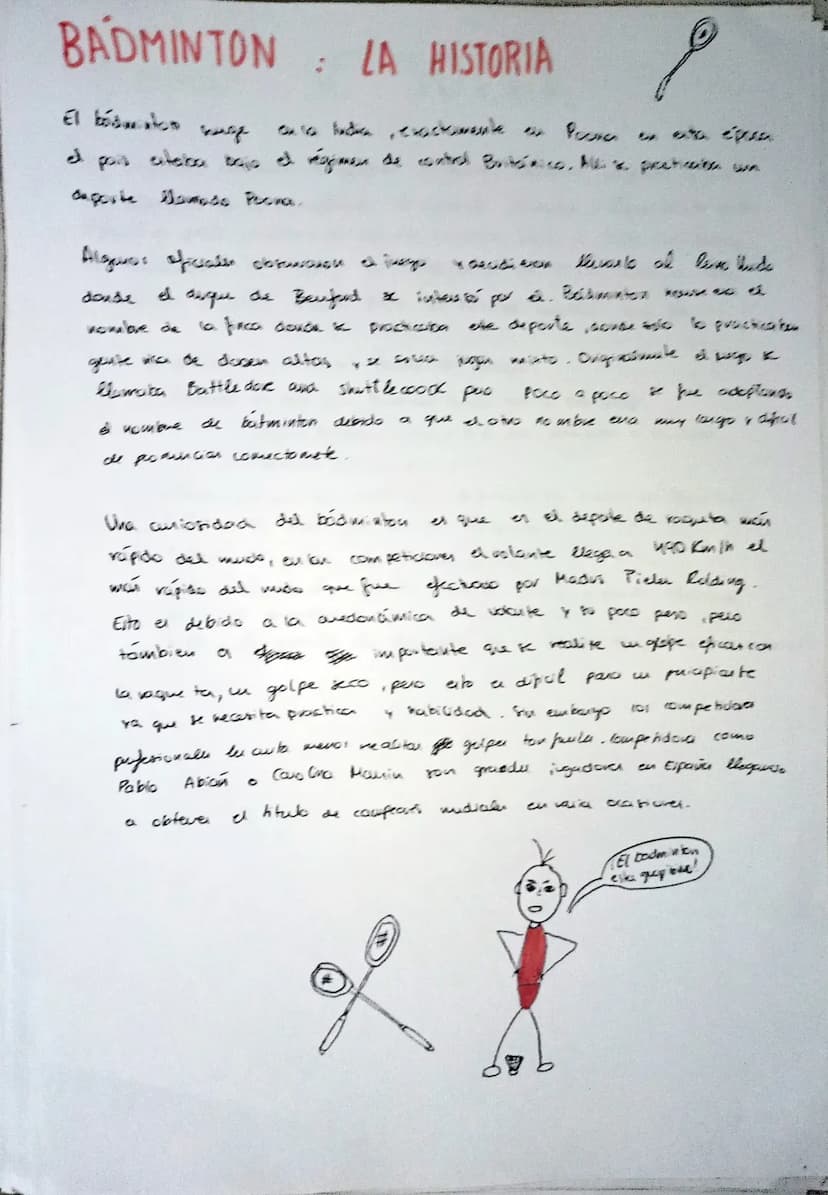 BÁDMINTON : LA HISTORIA
El bádminton surge en la India, exactamente en Poona en esta época
el pais estaba bajo el régimen de control Británico. Alli se practicaba un
deporte llamado Poona.
Algunos oficiales observaron el juego y decidieron llevarlo al Reino Unido
donde el duque de Beauford se interesó por él. Bádminton el
nombre de la finca donde se practicaba este deporte, donde solo lo practicaban
gente rica de clases altas, y se solia jugar mixto. Originalmente el juego se
llamaba Battledore and shuttlecock pero poco a poco se fue adoptando
el nombre de bátminton debido a que el otro nombre era muy largo y dificil
de pronunciar correctamete.
Una curiosidad del bádminton es que es el depote de raqueta más
rápido del mundo, en las competiciones el volante llega a 490 Km/h el
más rápido del mundo que fue efectuado por Mads Pieler Kolding.
Esto es debido a la de volante y su poco peso, pero
támbien es importante que se realice un golpe eficaz con
la raqueta, un golpe seco, pero esto es dificil para un principiante
ya que se necesita practica y habilidad. Sin embargo los competidores
profesionales les cuesta menos realizar golpes tan fuertes. Competidores como
Pablo Abián o Carolina Marin son grandes jugadores en España llegando
a obtener el titulo de campeón mundiales en varia ocasiones.
¡El badminton
esta !